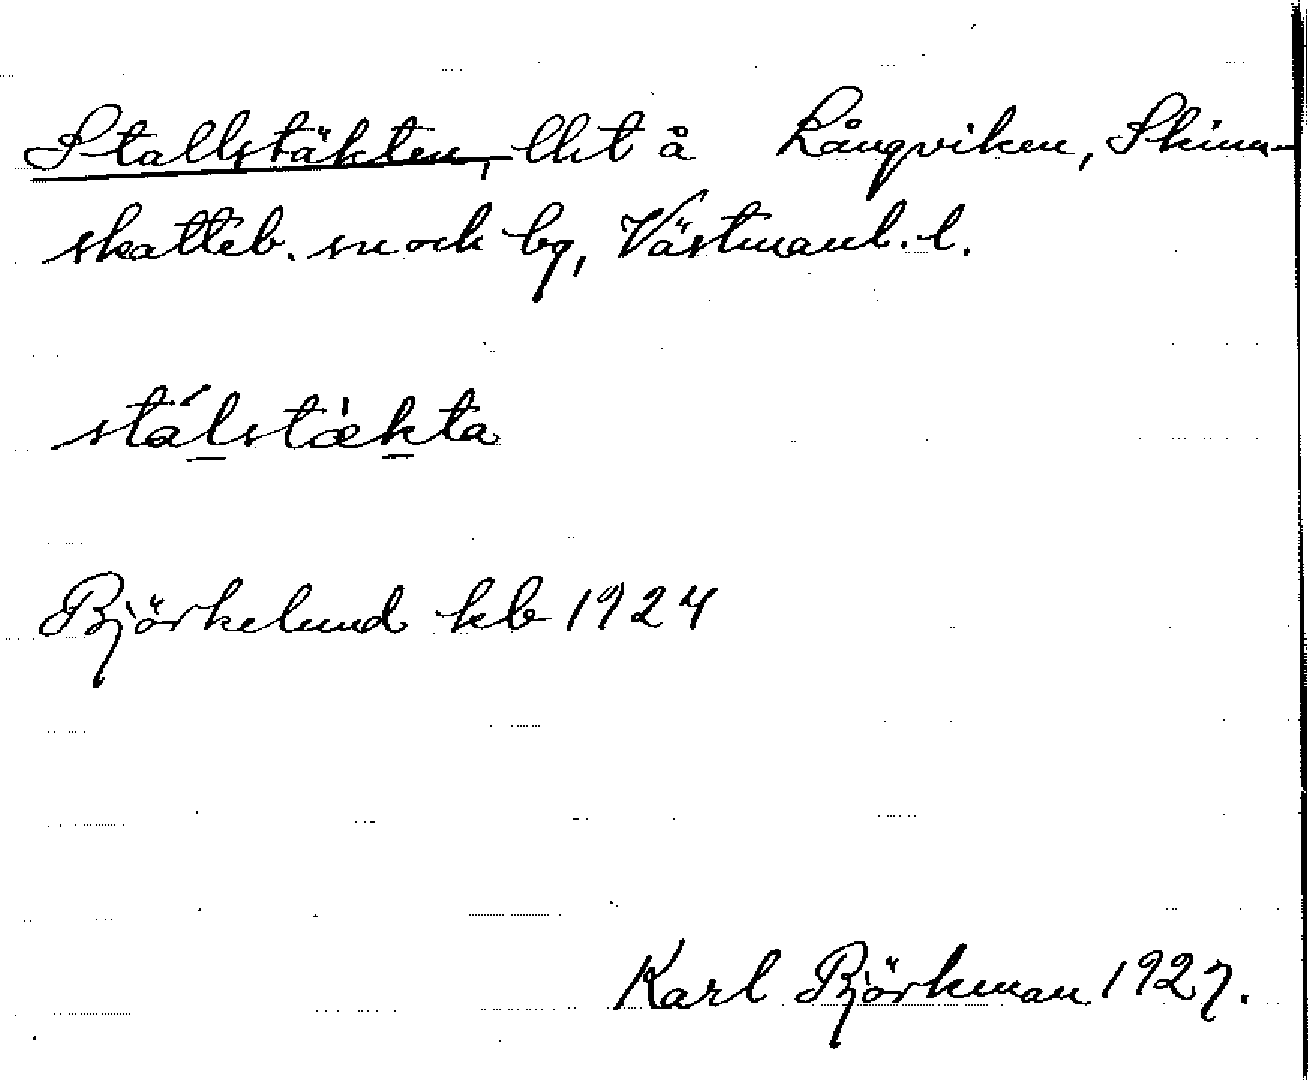 Stallstäkten, lht å Långviken, Skinn-
skatteb. sn och bg, Västmanl. l.
stálstæ̀kta
Björkelund kb 1924
Karl Björkman 1927.